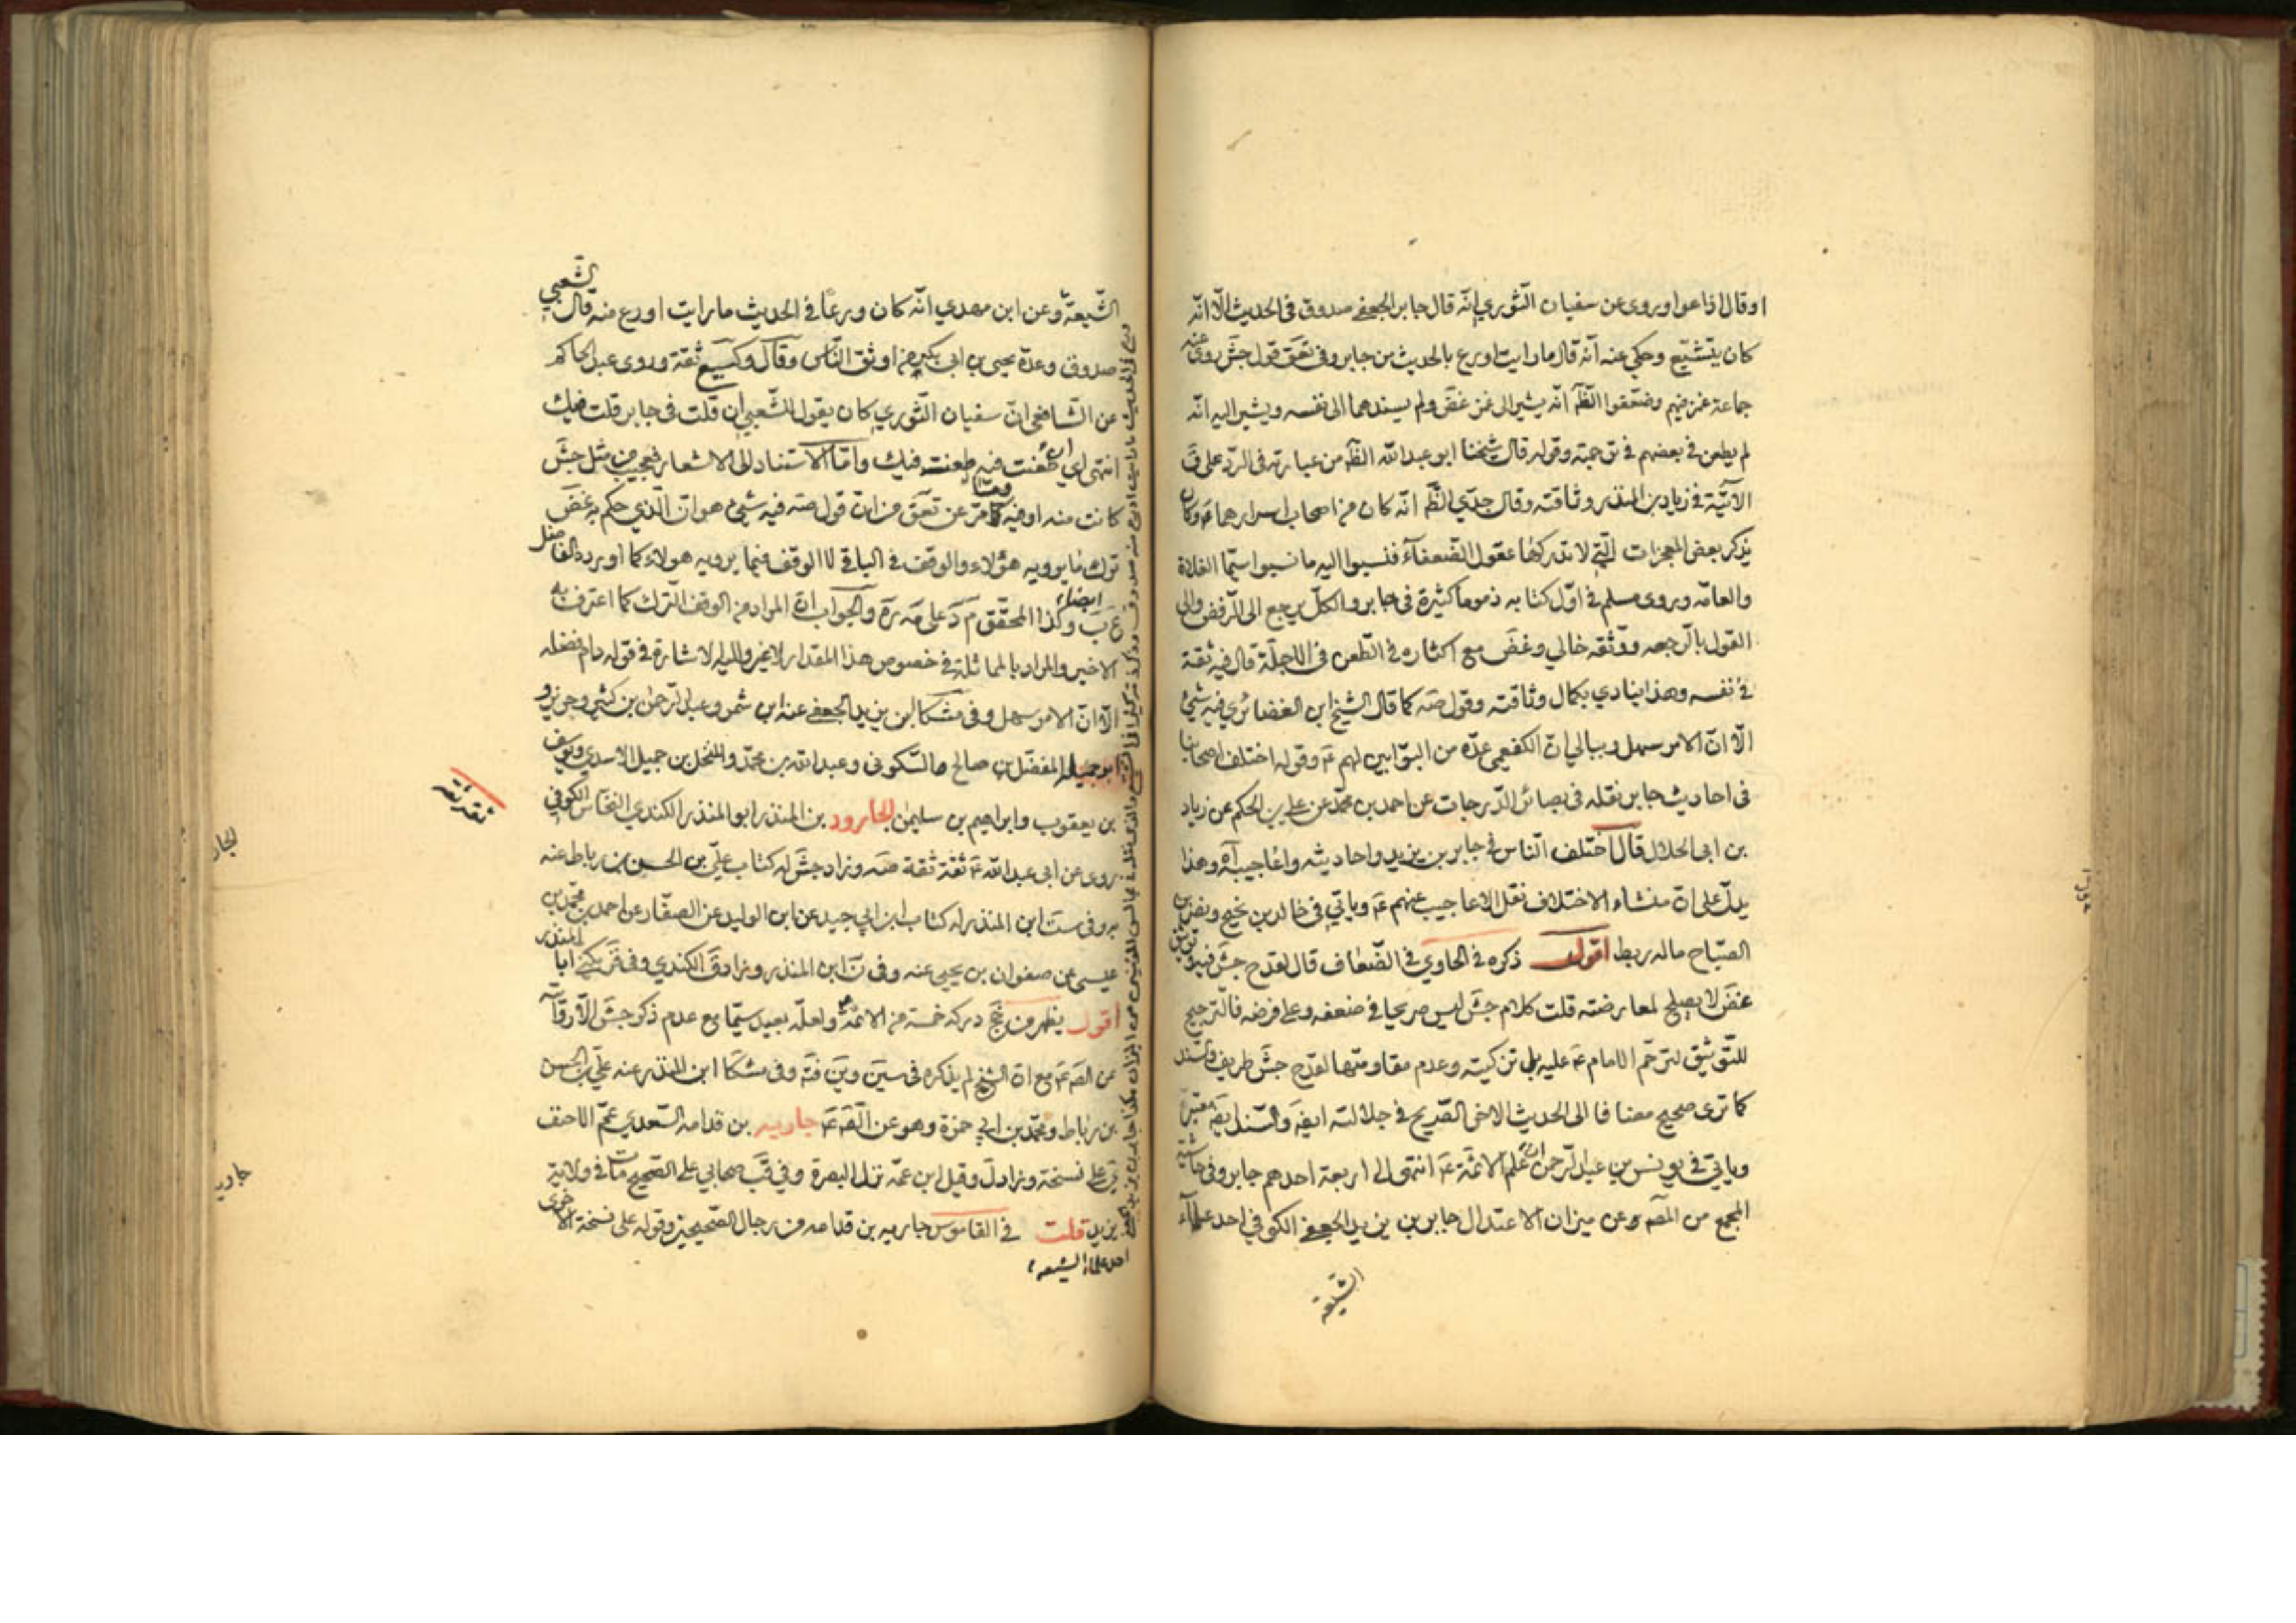 او قال اذاعوا وروى عن سفيان الثوري انّه قال جابر الجعفي صدوق في الحديث الّا انّه
كان يتشيّع وحكي عنه انّه قال ما رايت اورع بالحديث من جابر وفي تعق قول جش روى عنه
جماعة غمز فيهم وضعّفوا الظّ انّه يشير الى غمز غض ولم يسندهما الى نفسه ويشير اليه انّه
لم يطعن في بعضهم في ترجمته وقوله قال شيخنا ابو عبد الله الظّ من عبارته في الرد على ق
الآتية في زياد بن المنذر وثاقته وقال جدّي الظّ انّه كان من اصحاب اسرارهما ع وكان
يذكر بعض المعجزات الّتي لا تدركها عقول الضّعفاء فنسبوا اليه ما نسبوا سيّما الغلاة
والعامّه وروى مسلم في اوّل كتابه ذموما كثيرة في جابر والكلّ يرجع الى الرّفض والى
القول بالرّجعه ووثّقه خالي وغض مع اكثاره في الطّعن في الاجلّة قال فيه ثقة
في نفسه وهذا ينادي بكمال وثاقته وقول صه كما قال الشيخ ابن الغضائري فيه شيئ
الّا انّ الامر سهل وببالي انّ الكفعمي عدّه من البوّابين لهم ع وقوله اختلف اصحابنا
في احاديث جابر نقله في بصائر الدّرجات عن احمد بن محمّد عن علي بن الحكم عن زياد
بن ابي الحلال قال اختلف النّاس في جابر بن يزيد واحاديثه واعاجيبه آه وهذا
يدلّ على انّ منشاء الاختلاف نقل الاعاجيب عنهم ع وياتي في خالد بن نجيح ونصر بن
الصبّاح ماله ربط اقول ذكره في الحاوي في الضّعاف قال لقدح جش فيه وتوثيق
غض لا يصلح لمعارضته قلت كلام جش ليس صريحا في ضعفه وعلى فرضه فالترجيح
للتّوثيق لترحّم الامام ع عليه بل تزكيته وعدم مقاومتها لقدح جش طريف والسّند
كما ترى صحيح مضافا الى الحديث الاخر الصّريح في جلالته ايضا والسّند ايضا معتبر
وياتي في يونس بن عبد الرّحمن انّ علم الائمّة ع انتهى الى اربعة احدهم جابر وفي حاشية
المجمع من المص وعن ميزان الاعتدال جابر بن يزيد الجعفي الكوفي احد علماء
الشّيعة
الشّيعة وعن ابن مهدي انّه كان ورعًا في الحديث ما رايت اورع منه قال الشّعبي
صدوق وعدّة يحيى بن ابي بكير من اوثق النّاس وقال وكيع ثقة وروى عبد الحاكم
عن الشّافعي انّ سفيان الثّوري كان يقول للشّعبي ان قلت في جابر قلت فيك
انتهى اي ان طعنت فيه طعنت فيك وامّا الاستناد الى الاشعار فعجيب من مثل جش
كانت منه او فيه وممّا مرّ عن تعق من انّ قول صه فيه شيئ هو انّ الّذي حكم به غض
ترك ما يرويه هؤلاء والوقف في الباقي لا الوقف فيما يرويه هولاء كما اورده الفاضل
ع ب وكذا المحقّق م د ايضا على مه ره والجواب انّ المراد من الوقف التّرك كما اعترف به
الاخير والمراد بالمماثلة في خصوص هذا المقدار لا غير واليه الاشارة في قوله دام فضله
الّا انّ الامر سهل وفي مشكا ابن يزيد الجعفي عنه ابن شمر وعبد الرّحمن بن كثير وحريز و
ابو جميله المفضّل بن صالح والسّكوني وعبد الله بن محمّد والمنخل بن جميل الاسدي ويوسف
بن يعقوب وابراهيم بن سليمن الجارود بن المنذر ابو المنذر الكندي النخّاس الكوفي
روى عن ابي عبد الله ع ثقة ثقة صه وزاد جش له كتاب عليّ بن الحسن بن رباط عنه
به وفي ست ابن المنذر له كتاب ابن ابي جيد عن ابن الوليد عن الصفّار عن احمد بن محمّد بن
عيسى عن صفوان بن يحيى عنه وفي ن ابن المنذر وزاد ق الكندي وفي قر يكنى ابا المنذر
اقول يظهر من جخ دركه خمسة من الائمّة ع ولعلّه بعيد سيّما مع عدم ذكر جش الّا روايته
عن الص ع مع انّ الشيخ لم يذكره في سين وين فته وفي مشكا ابن المنذر عنه عليّ بن الحسن
بن رباط ومحمّد بن ابي حمزة وهو عن الص ع جاريه بن قدامه السّعدي عمّ الاحنف
ي على نسخة وزاد ل وقيل ابن عمّه نزل البصرة وفي قب صحابي على الصّحيح مات في ولاية
يزيد قلت في القاموس جاريه بن قدامه من رجال الصّحيحين وقوله على نسخة الاخرى
احد علماء الشّيعه
ثقة ثقة
الجار
جاريه